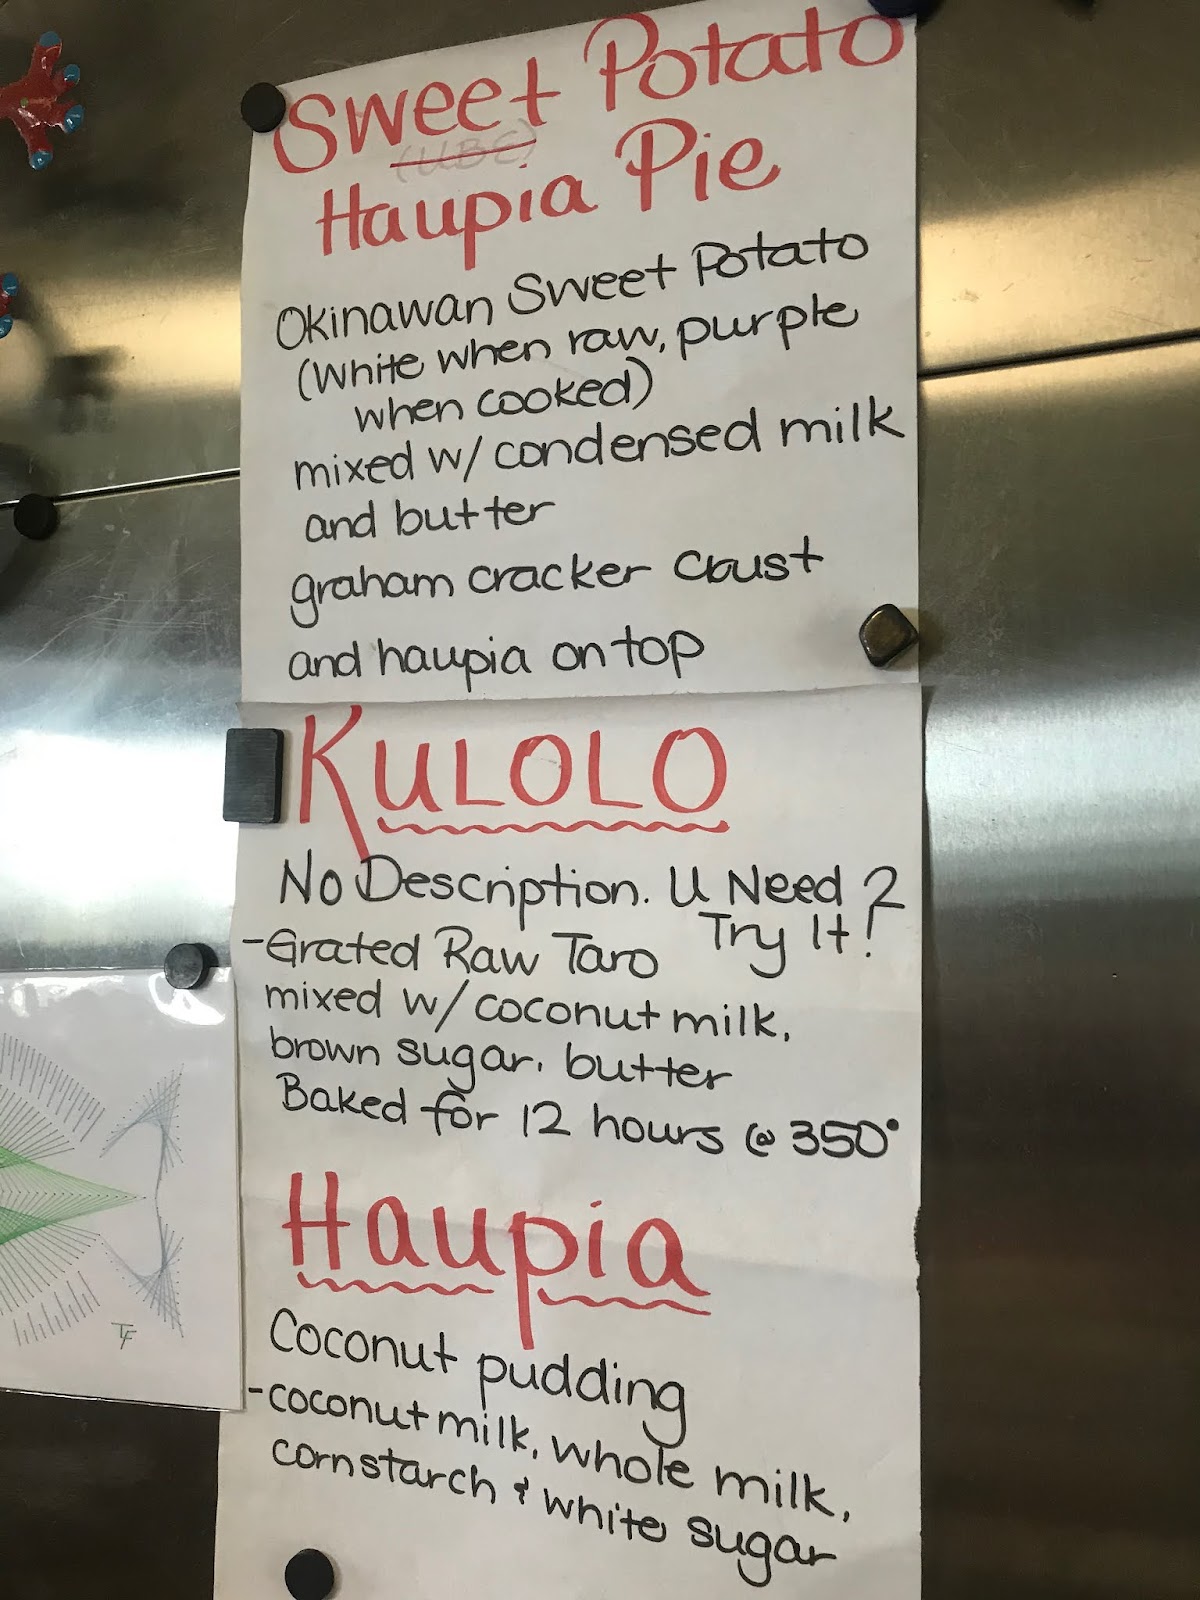 Sweet Potato
(UBE)
Haupia Pie
Okinawan Sweet Potato
(White when raw, purple
when cooked)
mixed w/ condensed milk
and butter
graham cracker crust
and haupia on top
KULOLO
No Description. U Need 2
Try It!
-Grated Raw Taro
mixed w/ coconut milk,
brown sugar, butter
Baked for 12 hours @ 350°
Haupia
Coconut pudding
-coconut milk, whole milk,
cornstarch & white sugar
TF